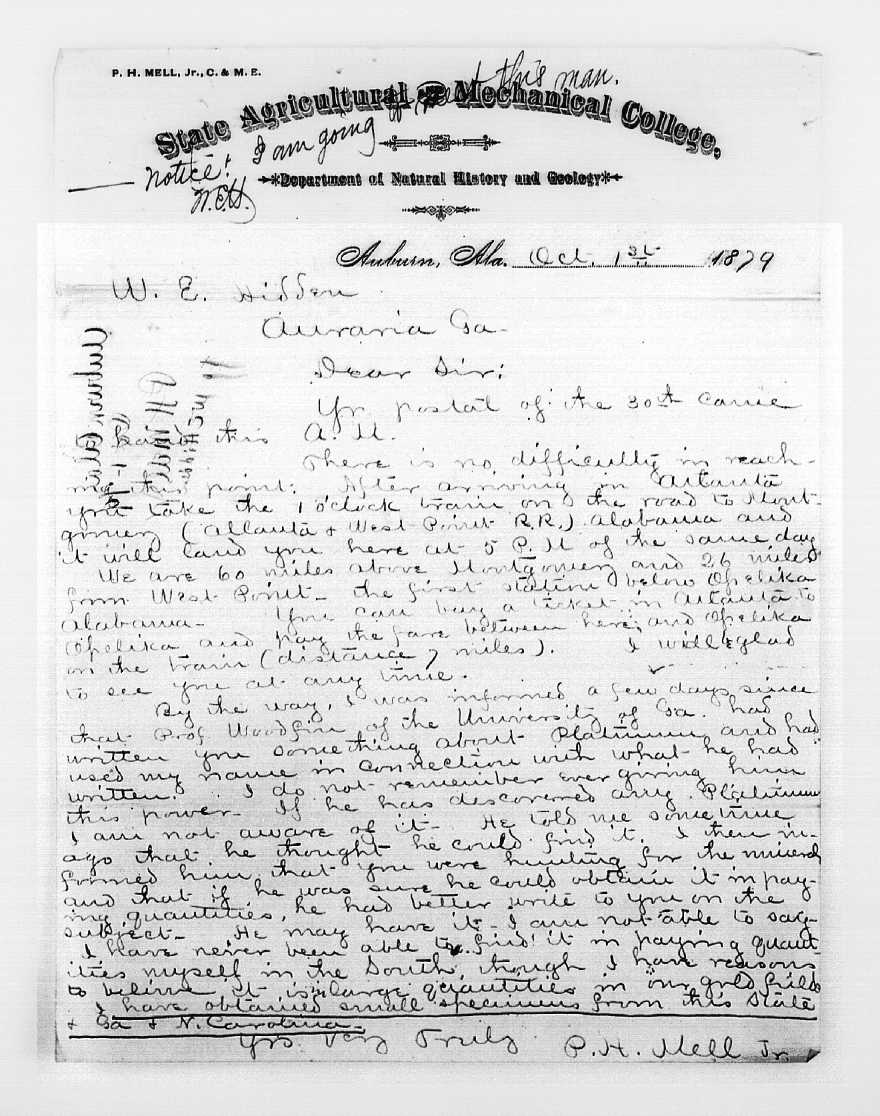 P. H. MELL, Jr., C. & M. E.
State Agricultural and Mechanical College,
notice! I am going to meet this man.
W.E.H.
Department of Natural History and Geology
Auburn, Ala. Oct. 1st 1879
W. E. Hidden
Auraria Ga-
Dear Sir:
Yr postal of the 30th came
to hand this A. M.
There is no difficulty in reach-
ing this point: After arriving in Atlanta
you take the 1 o'clock train on the road to Mont-
gomery (Atlanta & West Point R.R.) Alabama and
it will land you here at 5 P. M of the same day
We are 60 miles above Montgomery and 26 miles
from West Point- the first station below Opelika
Alabama- You can buy a ticket in Atlanta to
Opelika and pay the fare between here and Opelika
on the train (distance 7 miles). I will glad
to see you at any time.
By the way, I was informed a few days since
that Prof Woodfin of the University of Ga. had
written you something about Platinum and had
used my name in connection with what he had
written. I do not remember ever giving him
this power- If he has discovered any Platinum
I am not aware of it- He told me sometime
ago that he thought he could find it. I then in-
formed him that you were hunting for the mineral
and that if he was sure he could obtain it in pay-
ing quantities, he had better write to you on the
subject- He may have it- I am not able to say-
I have never been able to find it in paying quant-
ities myself in the South, though I have reasons
to believe it is in large quantities in our gold fields
I have obtained small specimens from this State
& Ga & N. Carolina-
Yrs Very Truly
P. H. Mell Jr